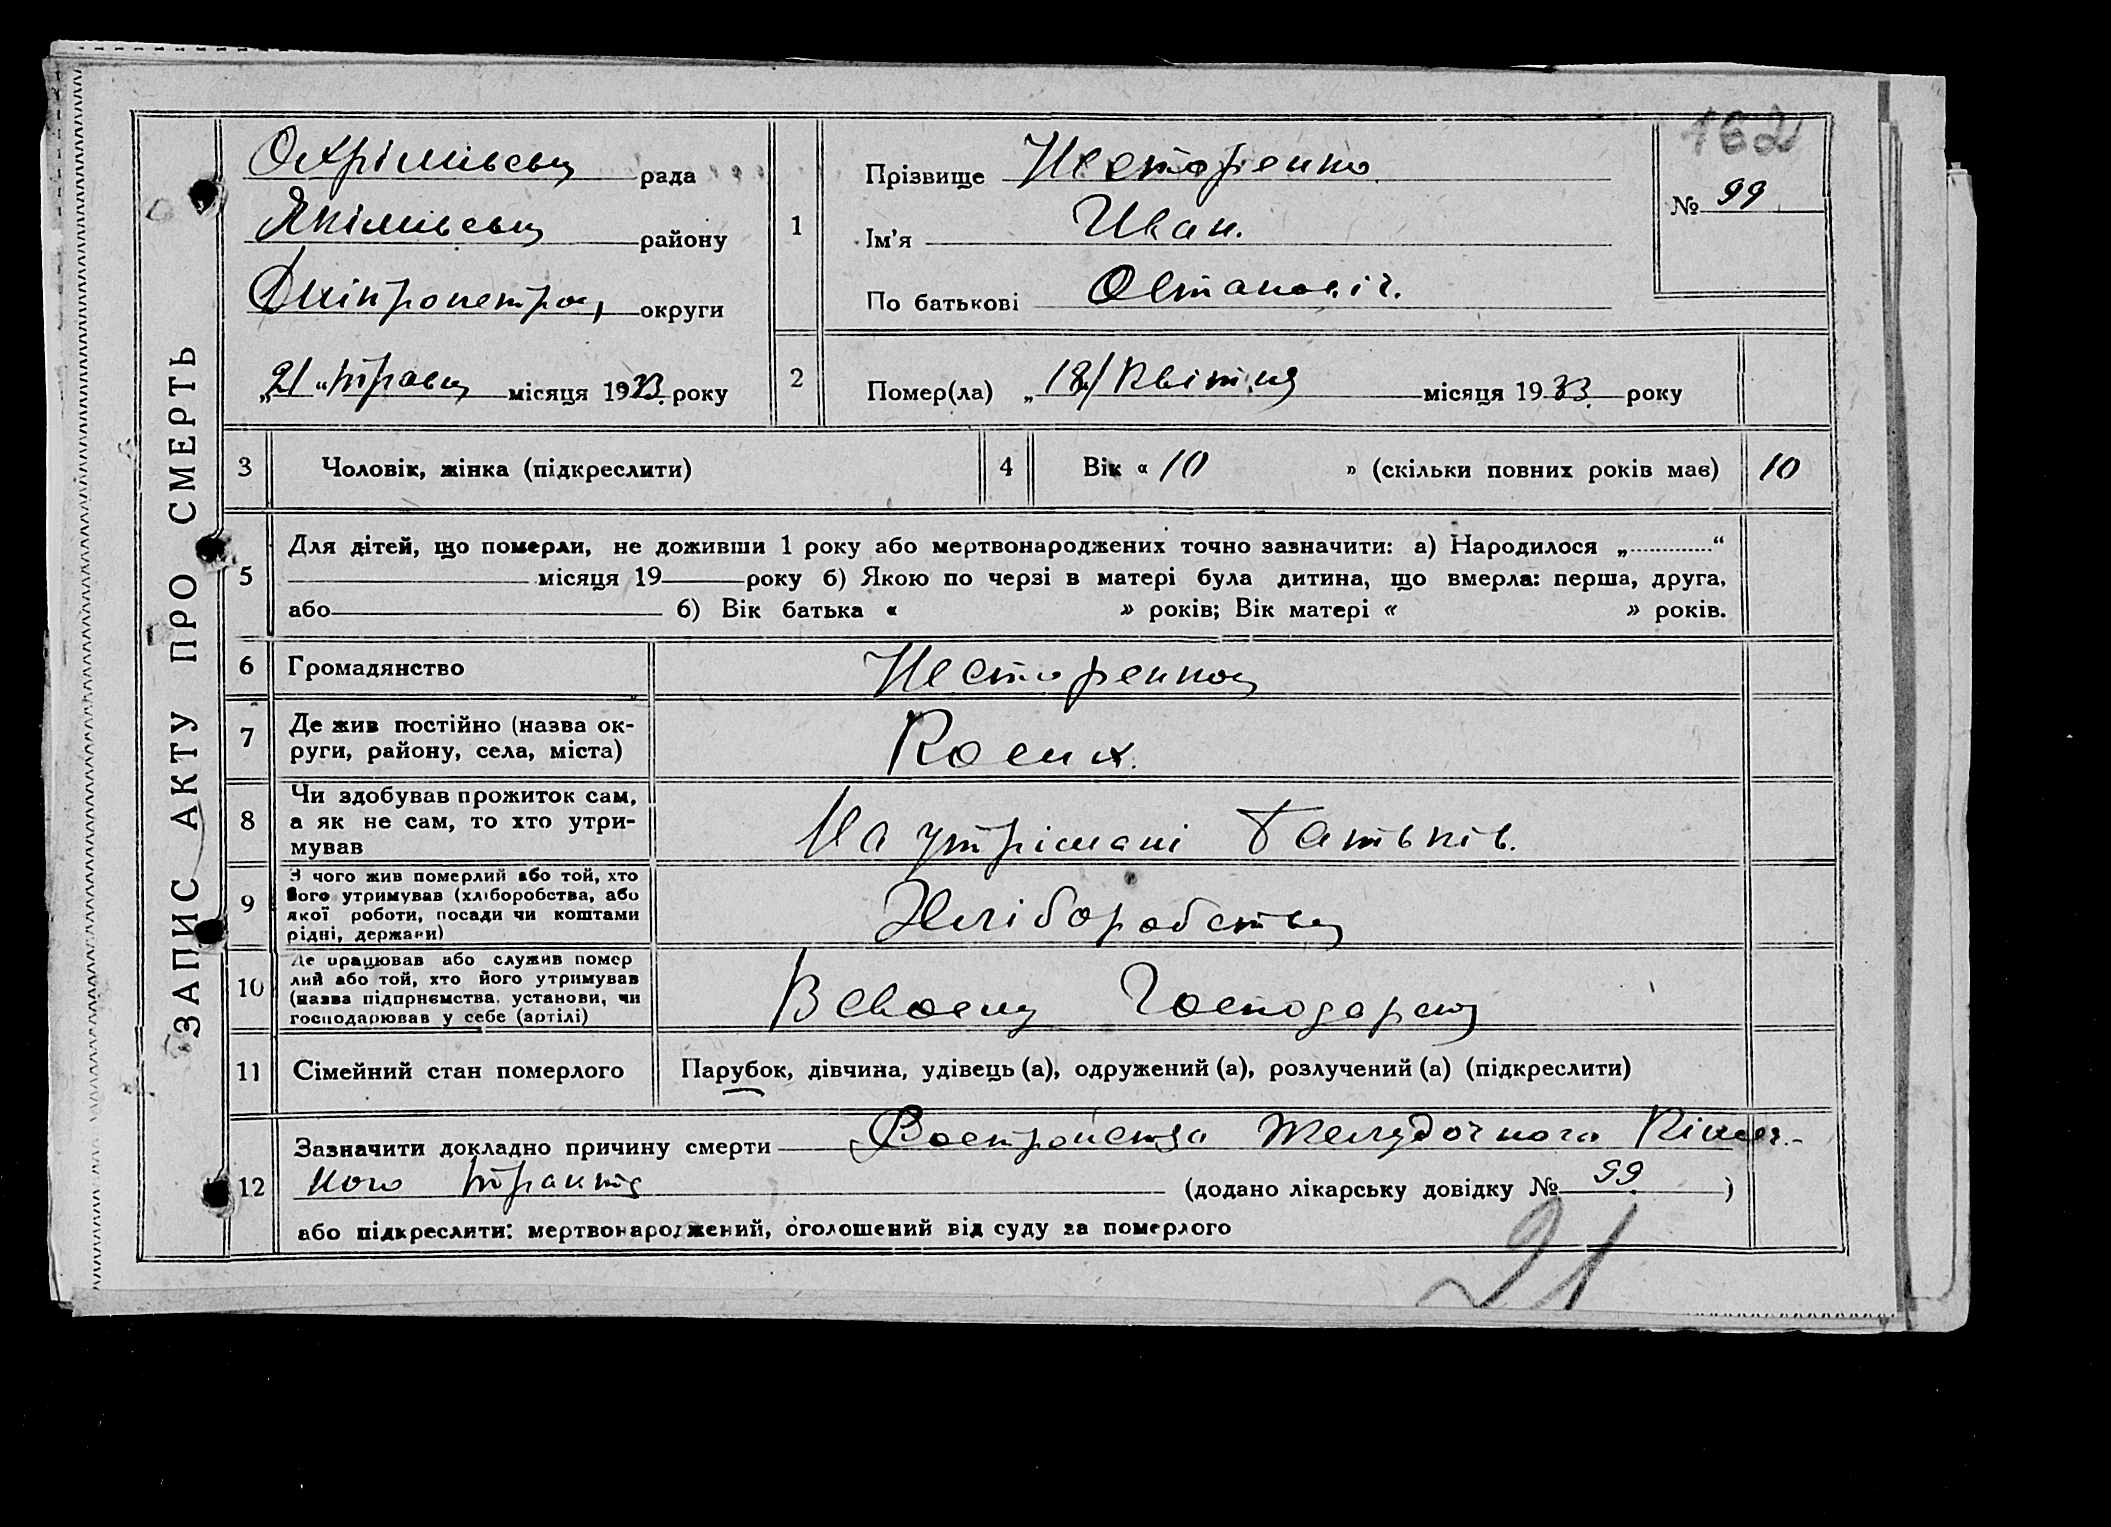 ЗАПИС АКТУ ПРО СМЕРТЬ
162
Охрімівськ рада
Якімівськ району
Дніпропетров округи
„21“ травня місяця 1933 року
1
Прізвище Несторенко
Ім'я Иван.
По батькові Остапович.
№ 99
2
Помер(ла) „18/ Квітня місяця 1933 року
3 Чоловік, жінка (підкреслити)
4 Вік « 10 » (скільки повних років має) 10
5
Для дітей, що померли, не доживши 1 року або мертвонароджених точно зазначити: а) Народилося „............“
місяця 19 року б) Якою по черзі в матері була дитина, що вмерла: перша, друга,
або б) Вік батька « » років; Вік матері « » років.
6 Громадянство Несторенко
7 Де жив постійно (назва ок-
руги, району, села, міста)
8 Чи здобував прожиток сам,
а як не сам, то хто утри-
мував
На утрімані батьків.
9 З чого жив померлий або той, хто
його утримував (хліборобства, або
якої роботи, посади чи коштами
рідні, держави)
Хліборобство
10 Де працював або служив помер
лий або той, хто його утримував
(назва підприємства, установи, чи
господарював у себе (артілі)
В своему Господарст
11 Сімейний стан померлого Парубок, дівчина, удівець (а), одружений (а), розлучений (а) (підкреслити)
12 Зазначити докладно причину смерти Желудочного Кишеч-
ного тракта (додано лікарську довідку № 99 )
або підкреслити: мертвонароджений, оголошений від суду за померлого
21